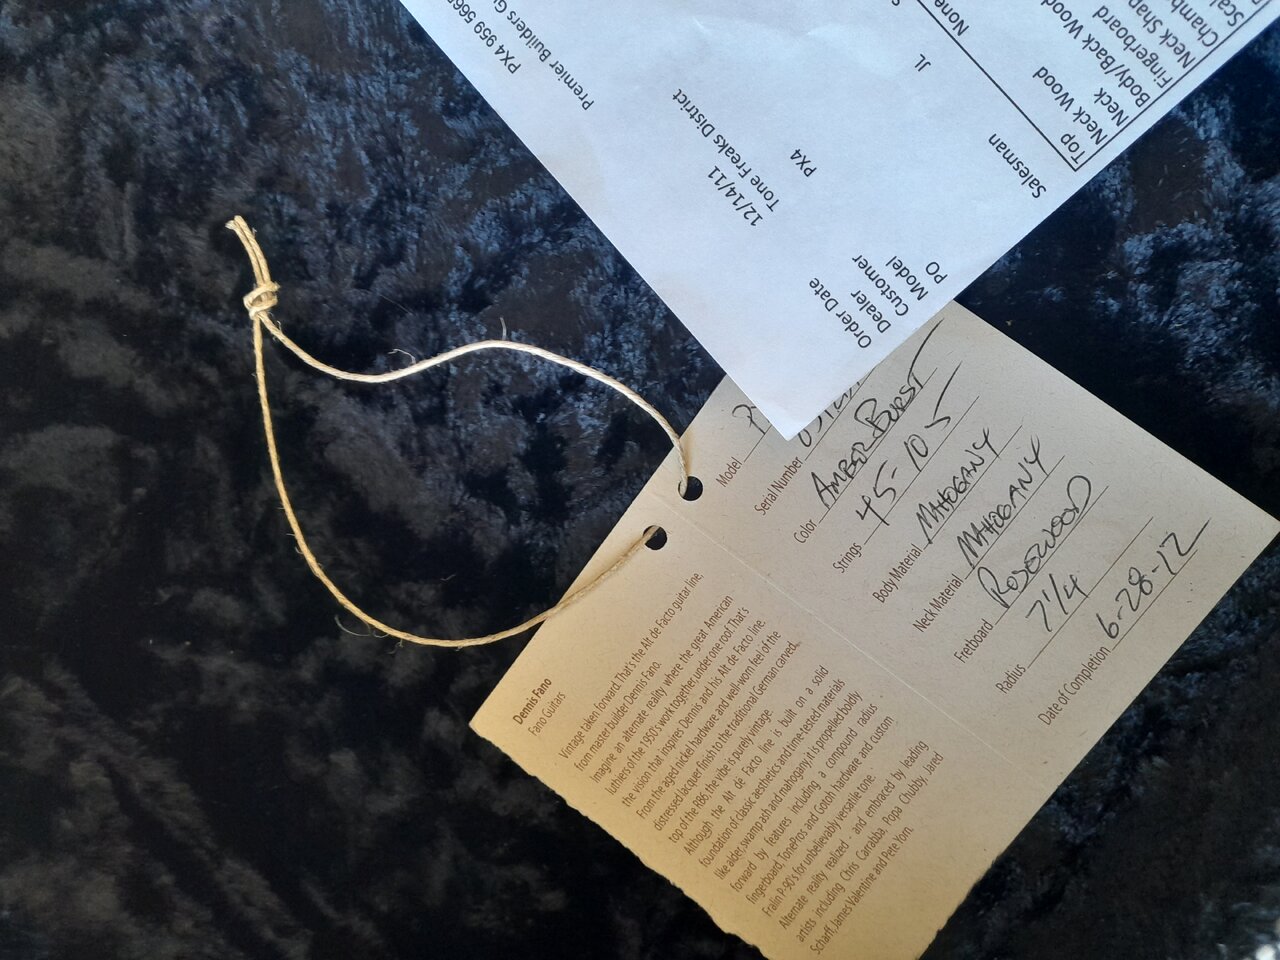 PX4 959
Premier Builders
Order Date 12/14/11
Dealer Tone Freaks District
Customer
Model PX4
PO
Salesman JL
Top None
Neck Wood
Neck
Body/Back Wood
Fingerboard
Neck Shap
Chamb
Scal
Model
Serial Number
Color AMBER BURST
Strings 45-105
Body Material MAHOGANY
Neck Material MAHOGANY
Fretboard ROSEWOOD
Radius 7 1/4
Date of Completion 6-28-12
Dennis Fano
Fano Guitars
Vintage taken forward. That's the Alt de Facto guitar line,
from master builder Dennis Fano.
Imagine an alternate reality where the great American
luthiers of the 1950's work together, under one roof. That's
the vision that inspires Dennis and his Alt de Facto line.
From the aged nickel hardware and well-worn feel of the
distressed lacquer finish to the traditional German carved
top of the RB6, the vibe is purely vintage.
Although the Alt de Facto line is built on a solid
foundation of classic aesthetics and time-tested materials
like alder, swamp ash and mahogany, it is propelled boldly
forward by features including a compound radius
fingerboard, TonePros and Gotoh hardware and custom
Fralin P-90's for unbelievably versatile tone.
Alternate reality realized - and embraced by leading
artists including Chris Carrabba, Popa Chubby, Jared
Scharff, James Valentine and Pete Yorn.